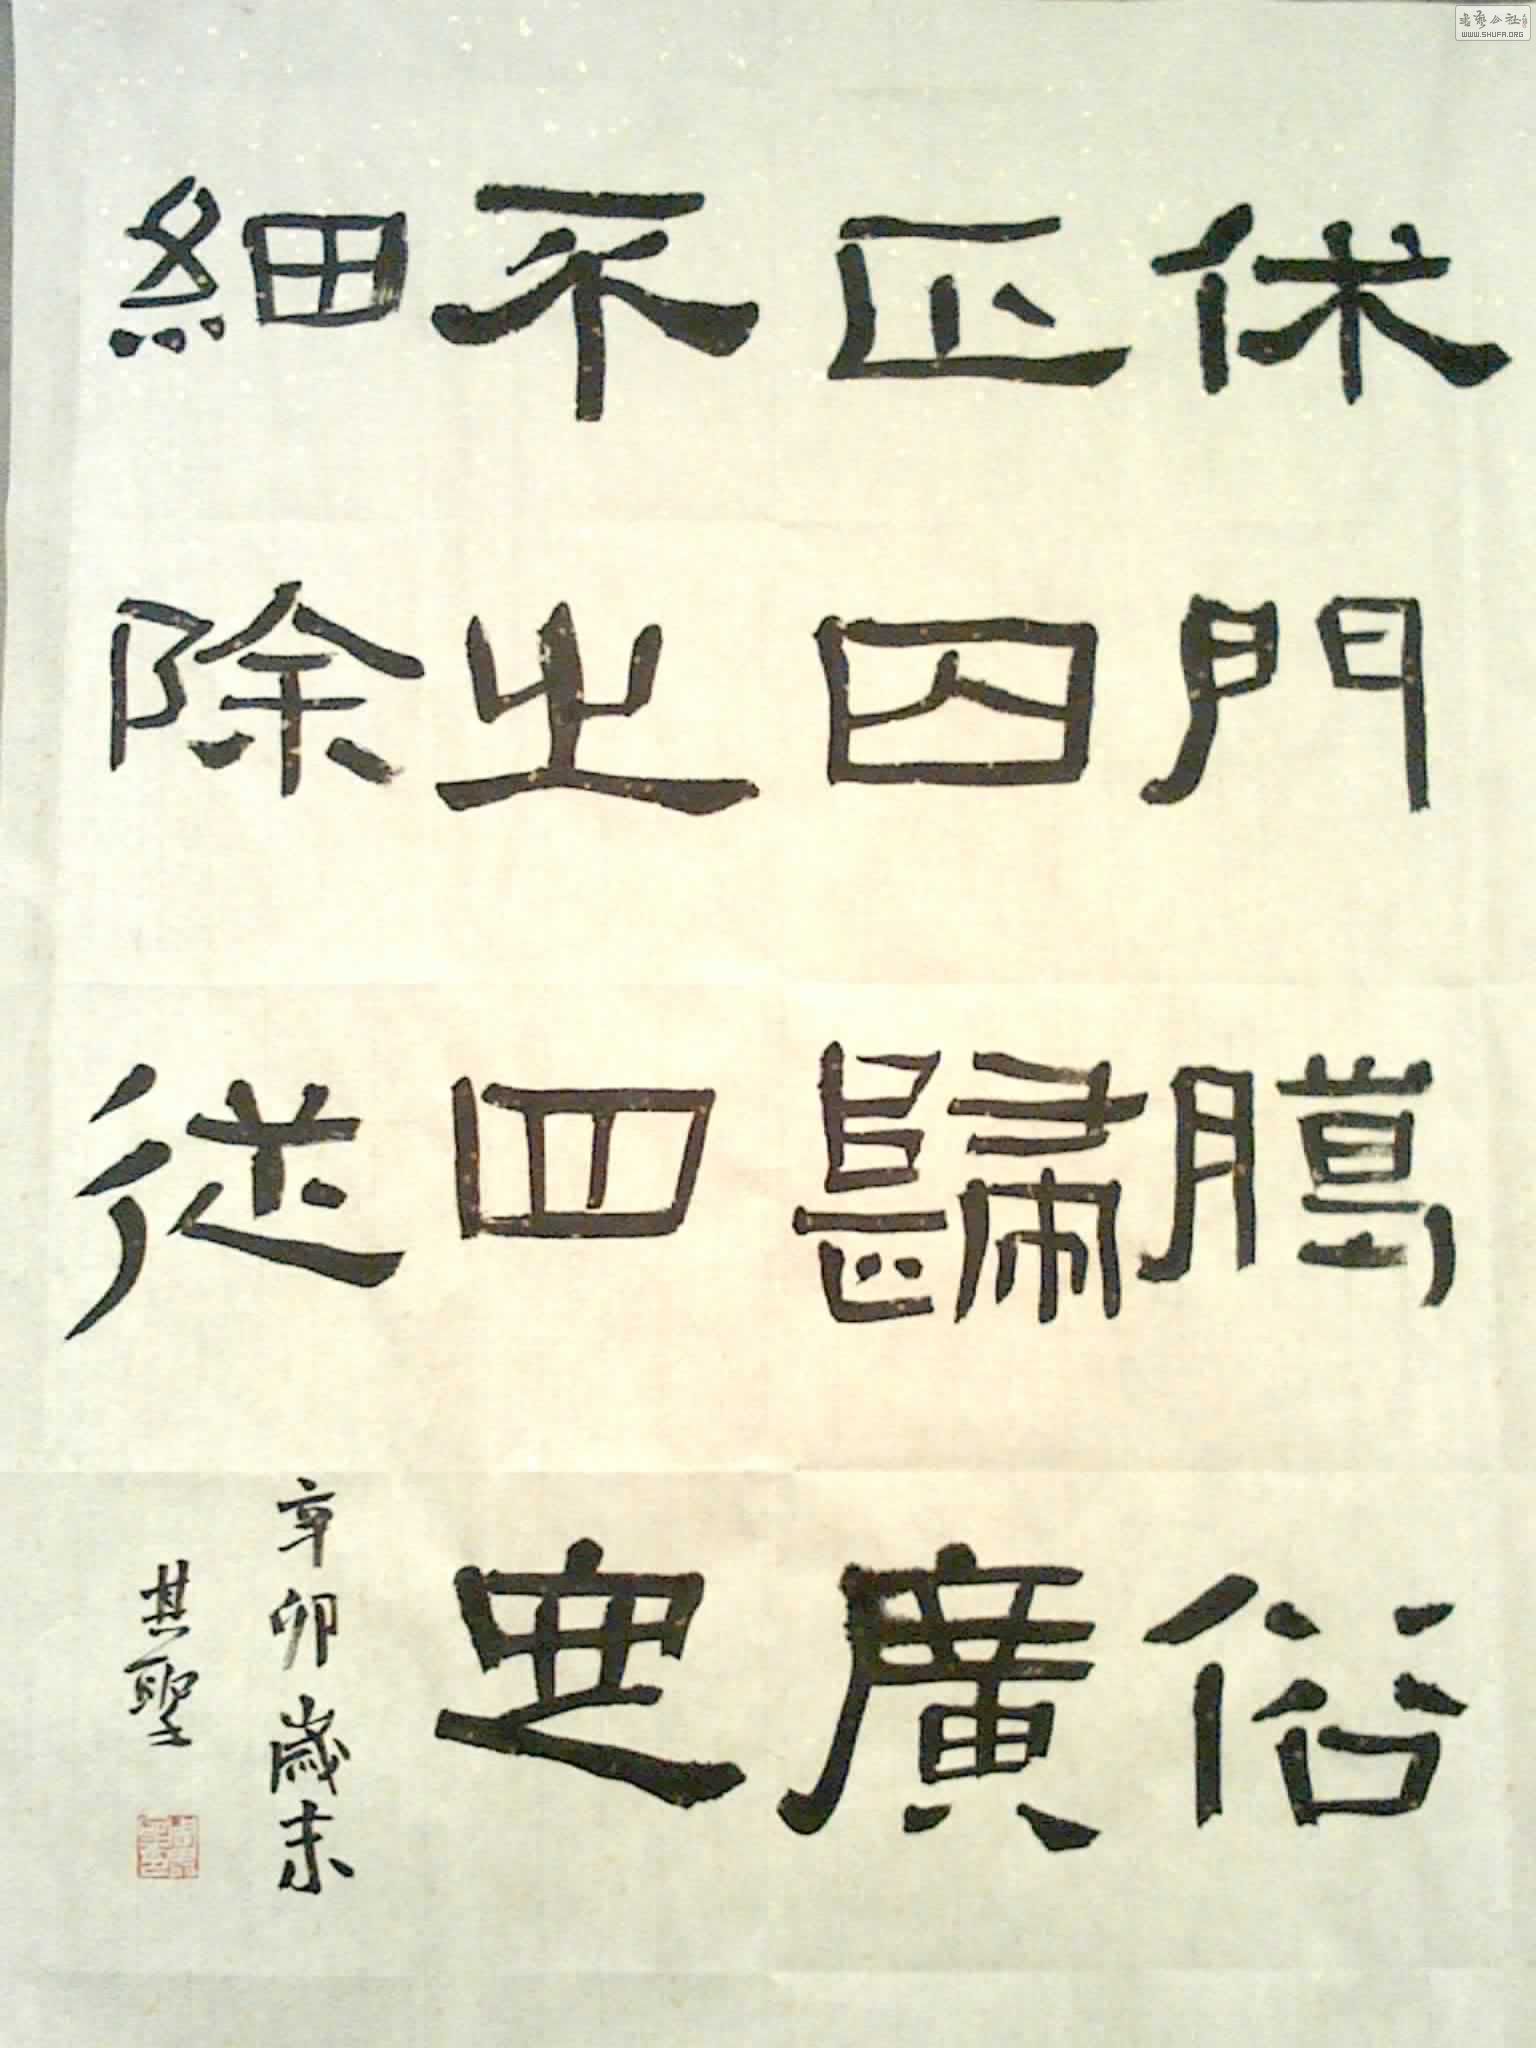 門俗
正囚歸廣
不出四
細除從
辛卯歲末
其聖
書藝公社
WWW.SHUFA.ORG